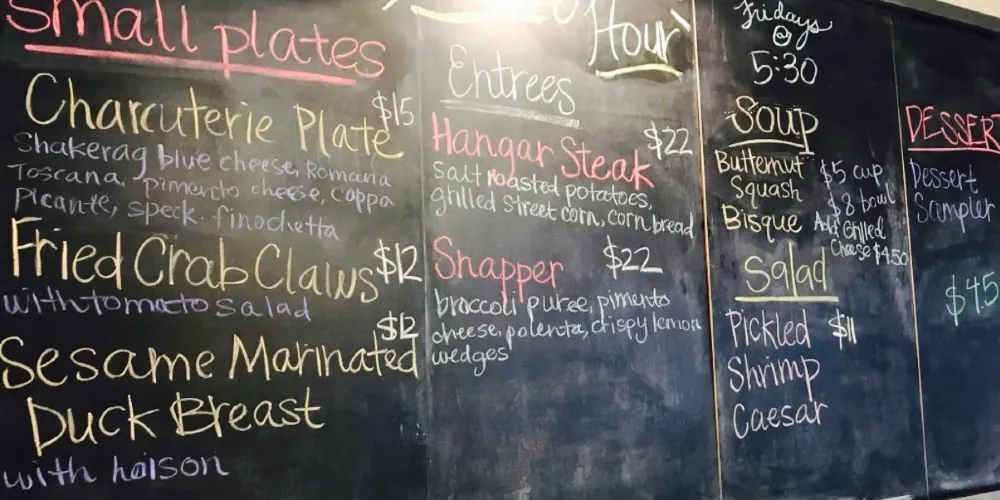 Small plates
Charcuterie Plate $15
Shakerag blue cheese, Romana
Toscana, pimento cheese, coppa
Picante, speck. finochetta
Fried Crab Claws $12
with tomato salad
Sesame Marinated $12
Duck Breast
with
Hour
Entrees
Hangar Steak $22
Salt roasted potatoes,
grilled street corn, corn bread
Snapper $22
broccoli puree, pimento
cheese, polenta, crispy lemon
wedges
Fridays
@
5:30
Soup
Butternut
Squash
Bisque
$5 cup
$8 bowl
Add Grilled
Cheese $4.50
Salad
Pickled $11
Shrimp
Caesar
DESSERT
Dessert
Sampler
$4.5